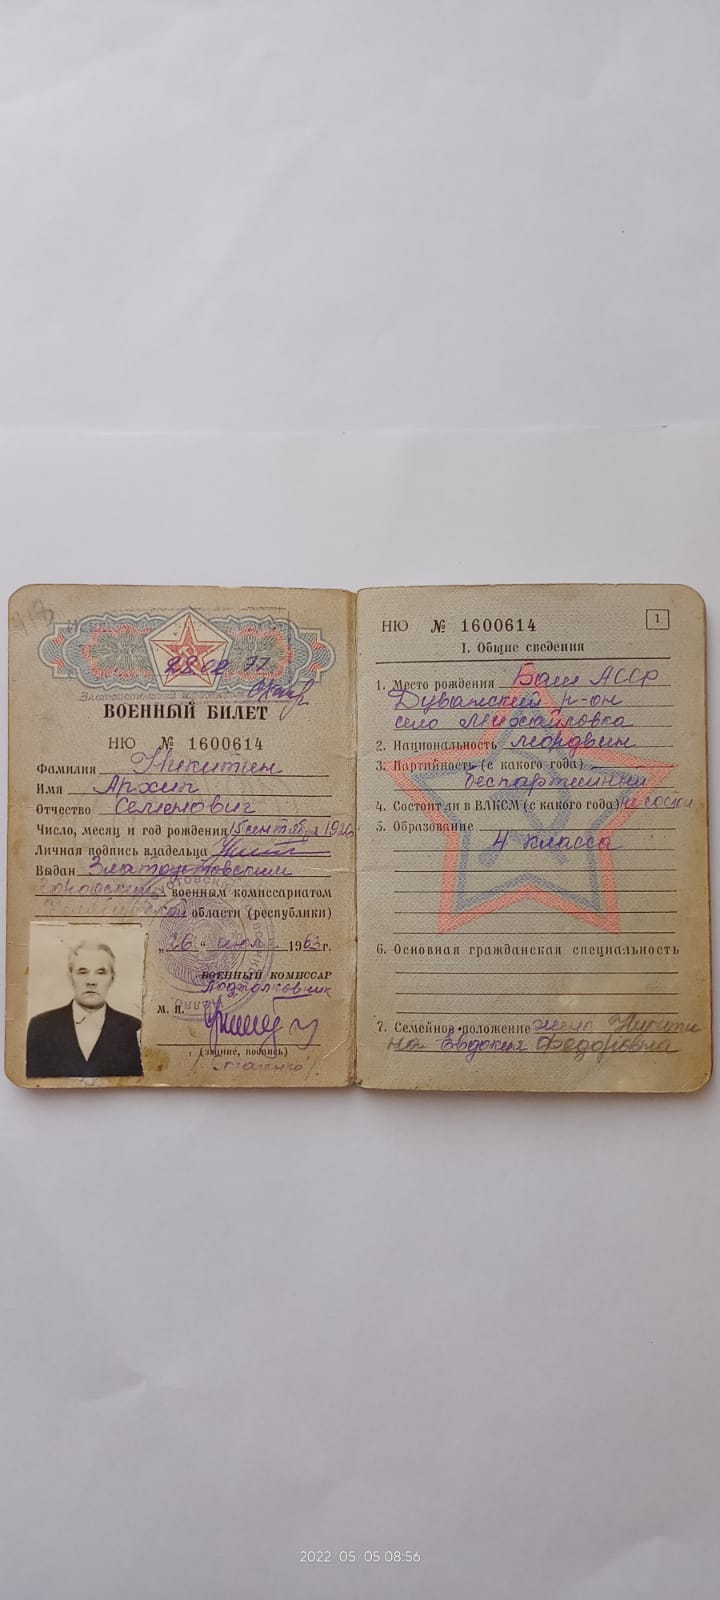 28 02 77
ВОЕННЫЙ БИЛЕТ
НЮ № 1600614
Фамилия Никитин
Имя Архип
Отчество Семенович
Число, месяц и год рождения 15 сентября
Личная подпись владельца
Выдан Златоустовским
военным комиссариатом
области (республики)
„26“ июля 1963 г.
ВОЕННЫЙ КОМИССАР
Подполковник
М. п.
(звание, подпись)
НЮ № 1600614
1
I. Общие сведения
1. Место рождения Баш АССР
Дуванский р-он
село Михайловка
2. Национальность мордвин
3. Партийность (с какого года)
беспартийный
4. Состоит ли в ВЛКСМ (с какого года) не состоял
5. Образование
4 класса
6. Основная гражданская специальность
7. Семейное положение жена Никити
на Евдокия Федоровна
2022 05 05 08:56